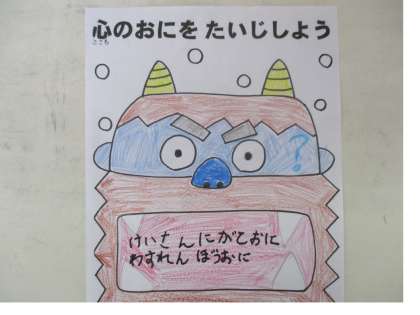 心のおにを たいじしよう
こころ
けいさんにがておに
わすれんぼうおに
?